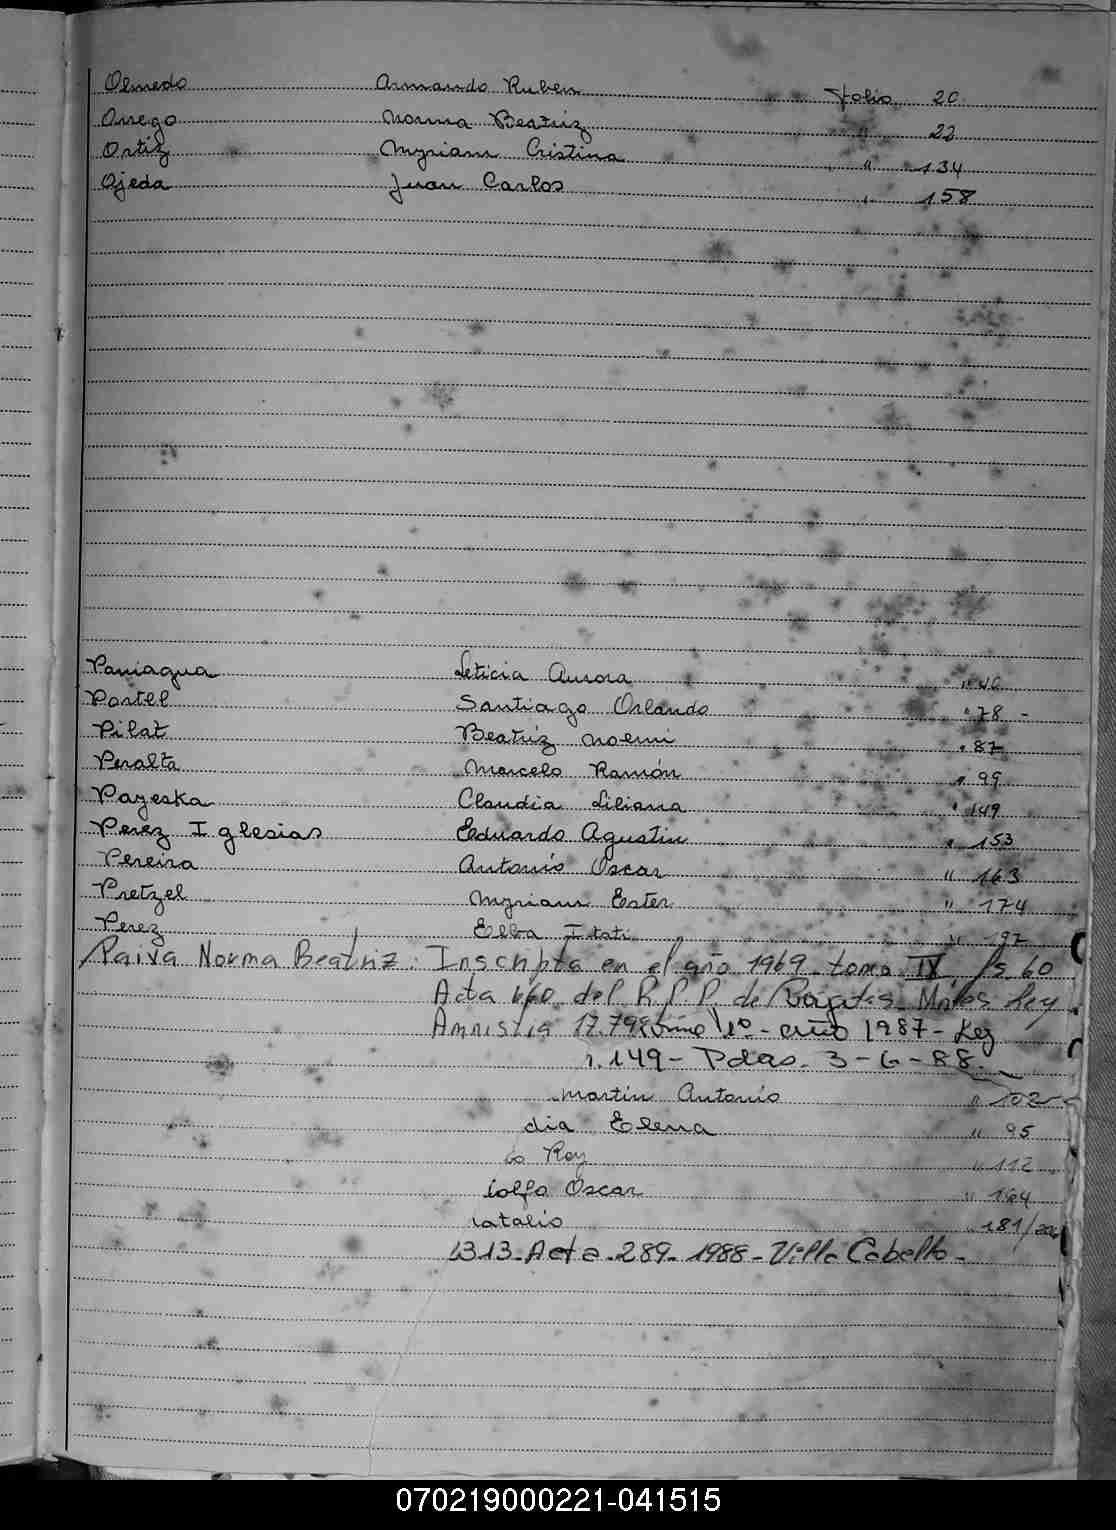 Olmedo Armando Ruben Folio 20
Orrego Norma Beatriz " 22
Ortiz Myriam Cristina " 134
Ojeda Juan Carlos " 158
Paniagua Leticia Aurora " 40
Portel Santiago Orlando " 78 -
Pilat Beatriz Noemi " 87
Peralta Marcelo Ramón " 99
Payeska Claudia Liliana " 149
Perez Iglesias Eduardo Agustin " 153
Pereira Antonio Oscar " 163
Pretzel Myriam Ester " 174
Perez Elba Itati " 197
Paiva Norma Beatriz: Inscripta en el año 1969 tomo IV fs 60
Acta 660 del R.P.P. de Mnes Ley
Amnistia 17.798 tomo 1º - año 1987 - Ley
r. 149 - Pdas. 3-6-88.
Martin Antonio " 102
dia Elena " 95
Roy " 112
dolfo Oscar " 164
Natalio 181/
1313 - Acta - 289 - 1988 - Villa Cabello -
070219000221-041515